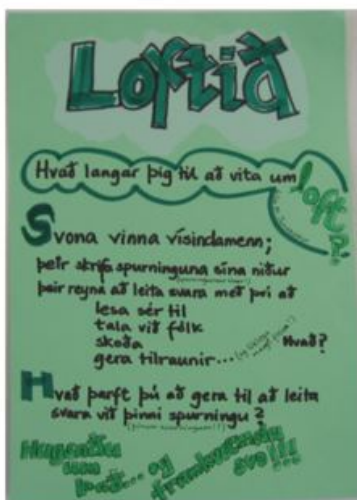 Loftið
Hvað langar þig til að vita um
loft
Svona vinna vísindamenn;
þeir skrifa spurninguna sína niður
þeir reyna að leita svara með því að
lesa sér til
tala við fólk
skoða
Hvað?
gera tilraunir...
Hvað þarft þú að gera til að leita
svara við þinni spurningu?
Hugsaðu
um
það... og
framkvæmdu
svo!!!